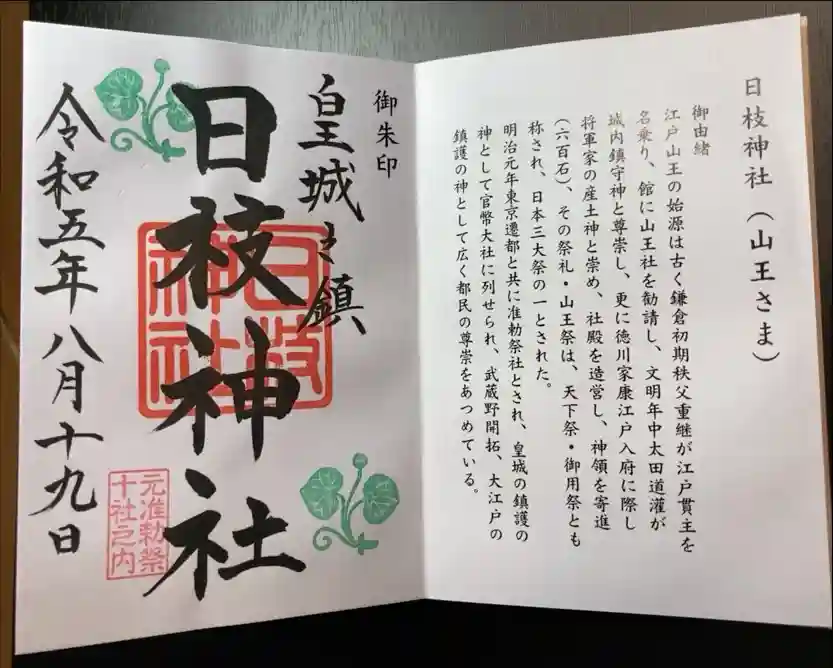 日枝神社(山王さま)
御由緒
江戸山王の始源は古く鎌倉初期秩父重継が江戸貫主を
名乗り、館に山王社を勧請し、文明年中太田道灌が
城内鎮守神と尊崇し、更に徳川家康江戸入府に際し
将軍家の産土神と崇め、社殿を造営し、神領を寄進
(六百石)、その祭礼・山王祭は、天下祭・御用祭とも
称され、日本三大祭の一とされた。
明治元年東京遷都と共に准勅祭社とされ、皇城の鎮護の
神として官幣大社に列せられ、武蔵野開拓、大江戸の
鎮護の神として広く都民の尊崇をあつめている。
御朱印
皇城之鎮
日枝神社
日枝
神社
元准勅祭
十社之内
令和五年八月十九日